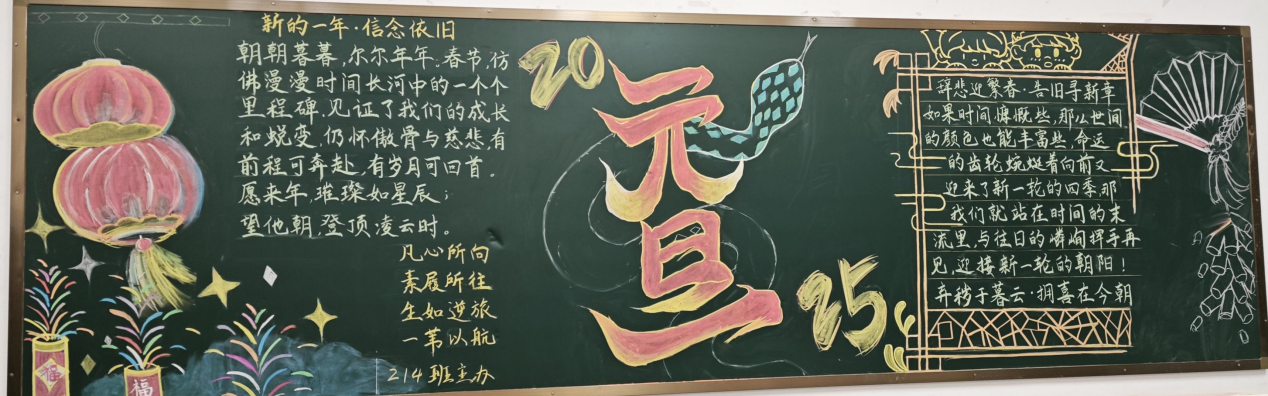 新的一年·信念依旧
朝朝暮暮,尔尔年年.春节,仿
佛漫漫时间长河中的一个个
里程碑,见证了我们的成长
和蜕变,仍怀傲骨与慈悲,有
前程可奔赴,有岁月可回首。
愿来年,璀璨如星辰;
望他朝,登顶凌云时。
凡心所向
素履所往
生如逆旅
一苇以航
214班主办
福
20
元
旦
25
辞悲迎繁春·告旧寻新章
如果时间慷慨些,那么世间
的颜色也能丰富些,命运
的齿轮蜿蜒着向前又
迎来了新一轮的四季,那
我们就站在时间的末
流里,与往日的嶙峋挥手再
见,迎接新一轮的朝阳!
弃秽于暮云·拥喜在今朝